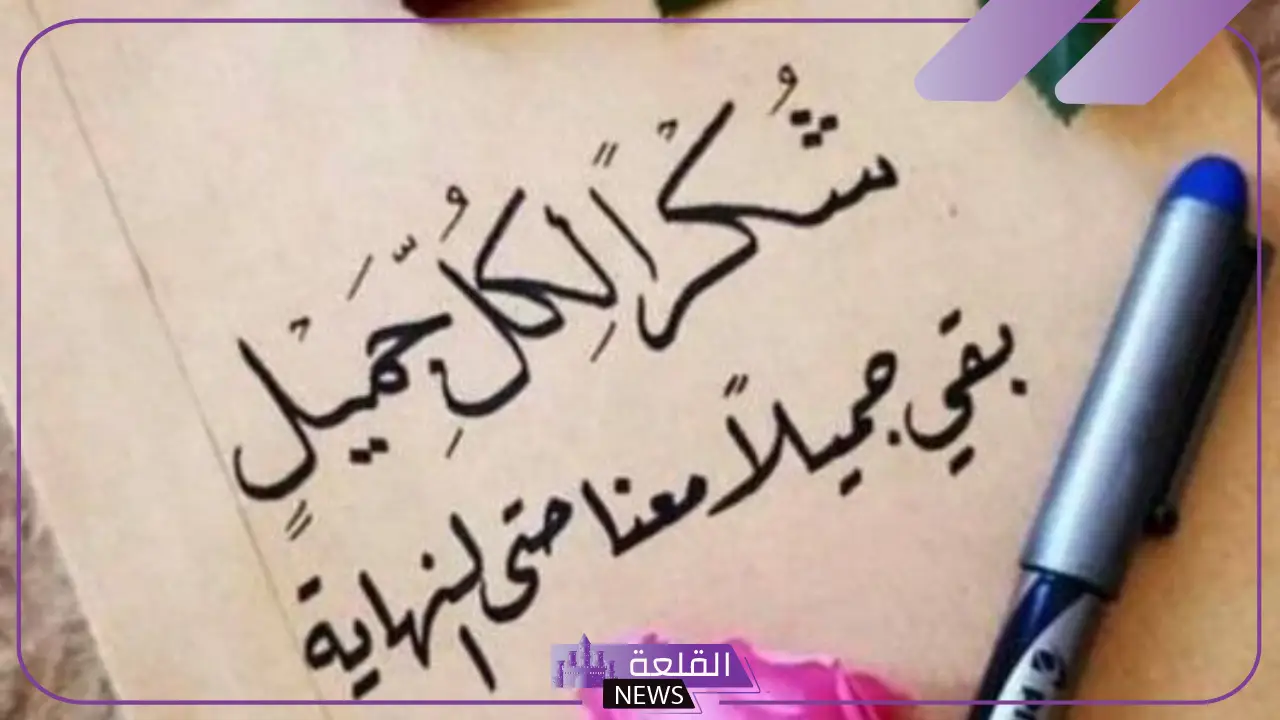 شُكْرًا لِكُلِّ جَمَيْلٍ
بقي جميلاً معنا حتى النهاية
القلعة
NEWS